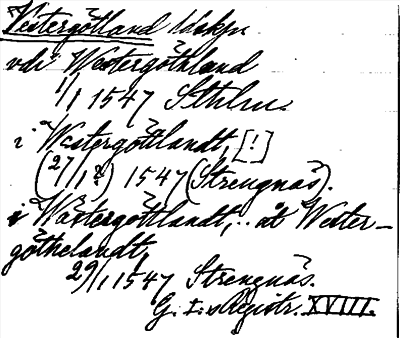 Vestergötland ldskpn
vdr Westergöthland
1/1 1547 Sthlm.
i Westergöttlandt, [!]
(27/1?) 1547 (Strengnäs).
i Wästergöttlandt,.. åt Wester-
göthelandt,
29/1 1547 Strengnäs.
G. I:s Registr. XVIII.